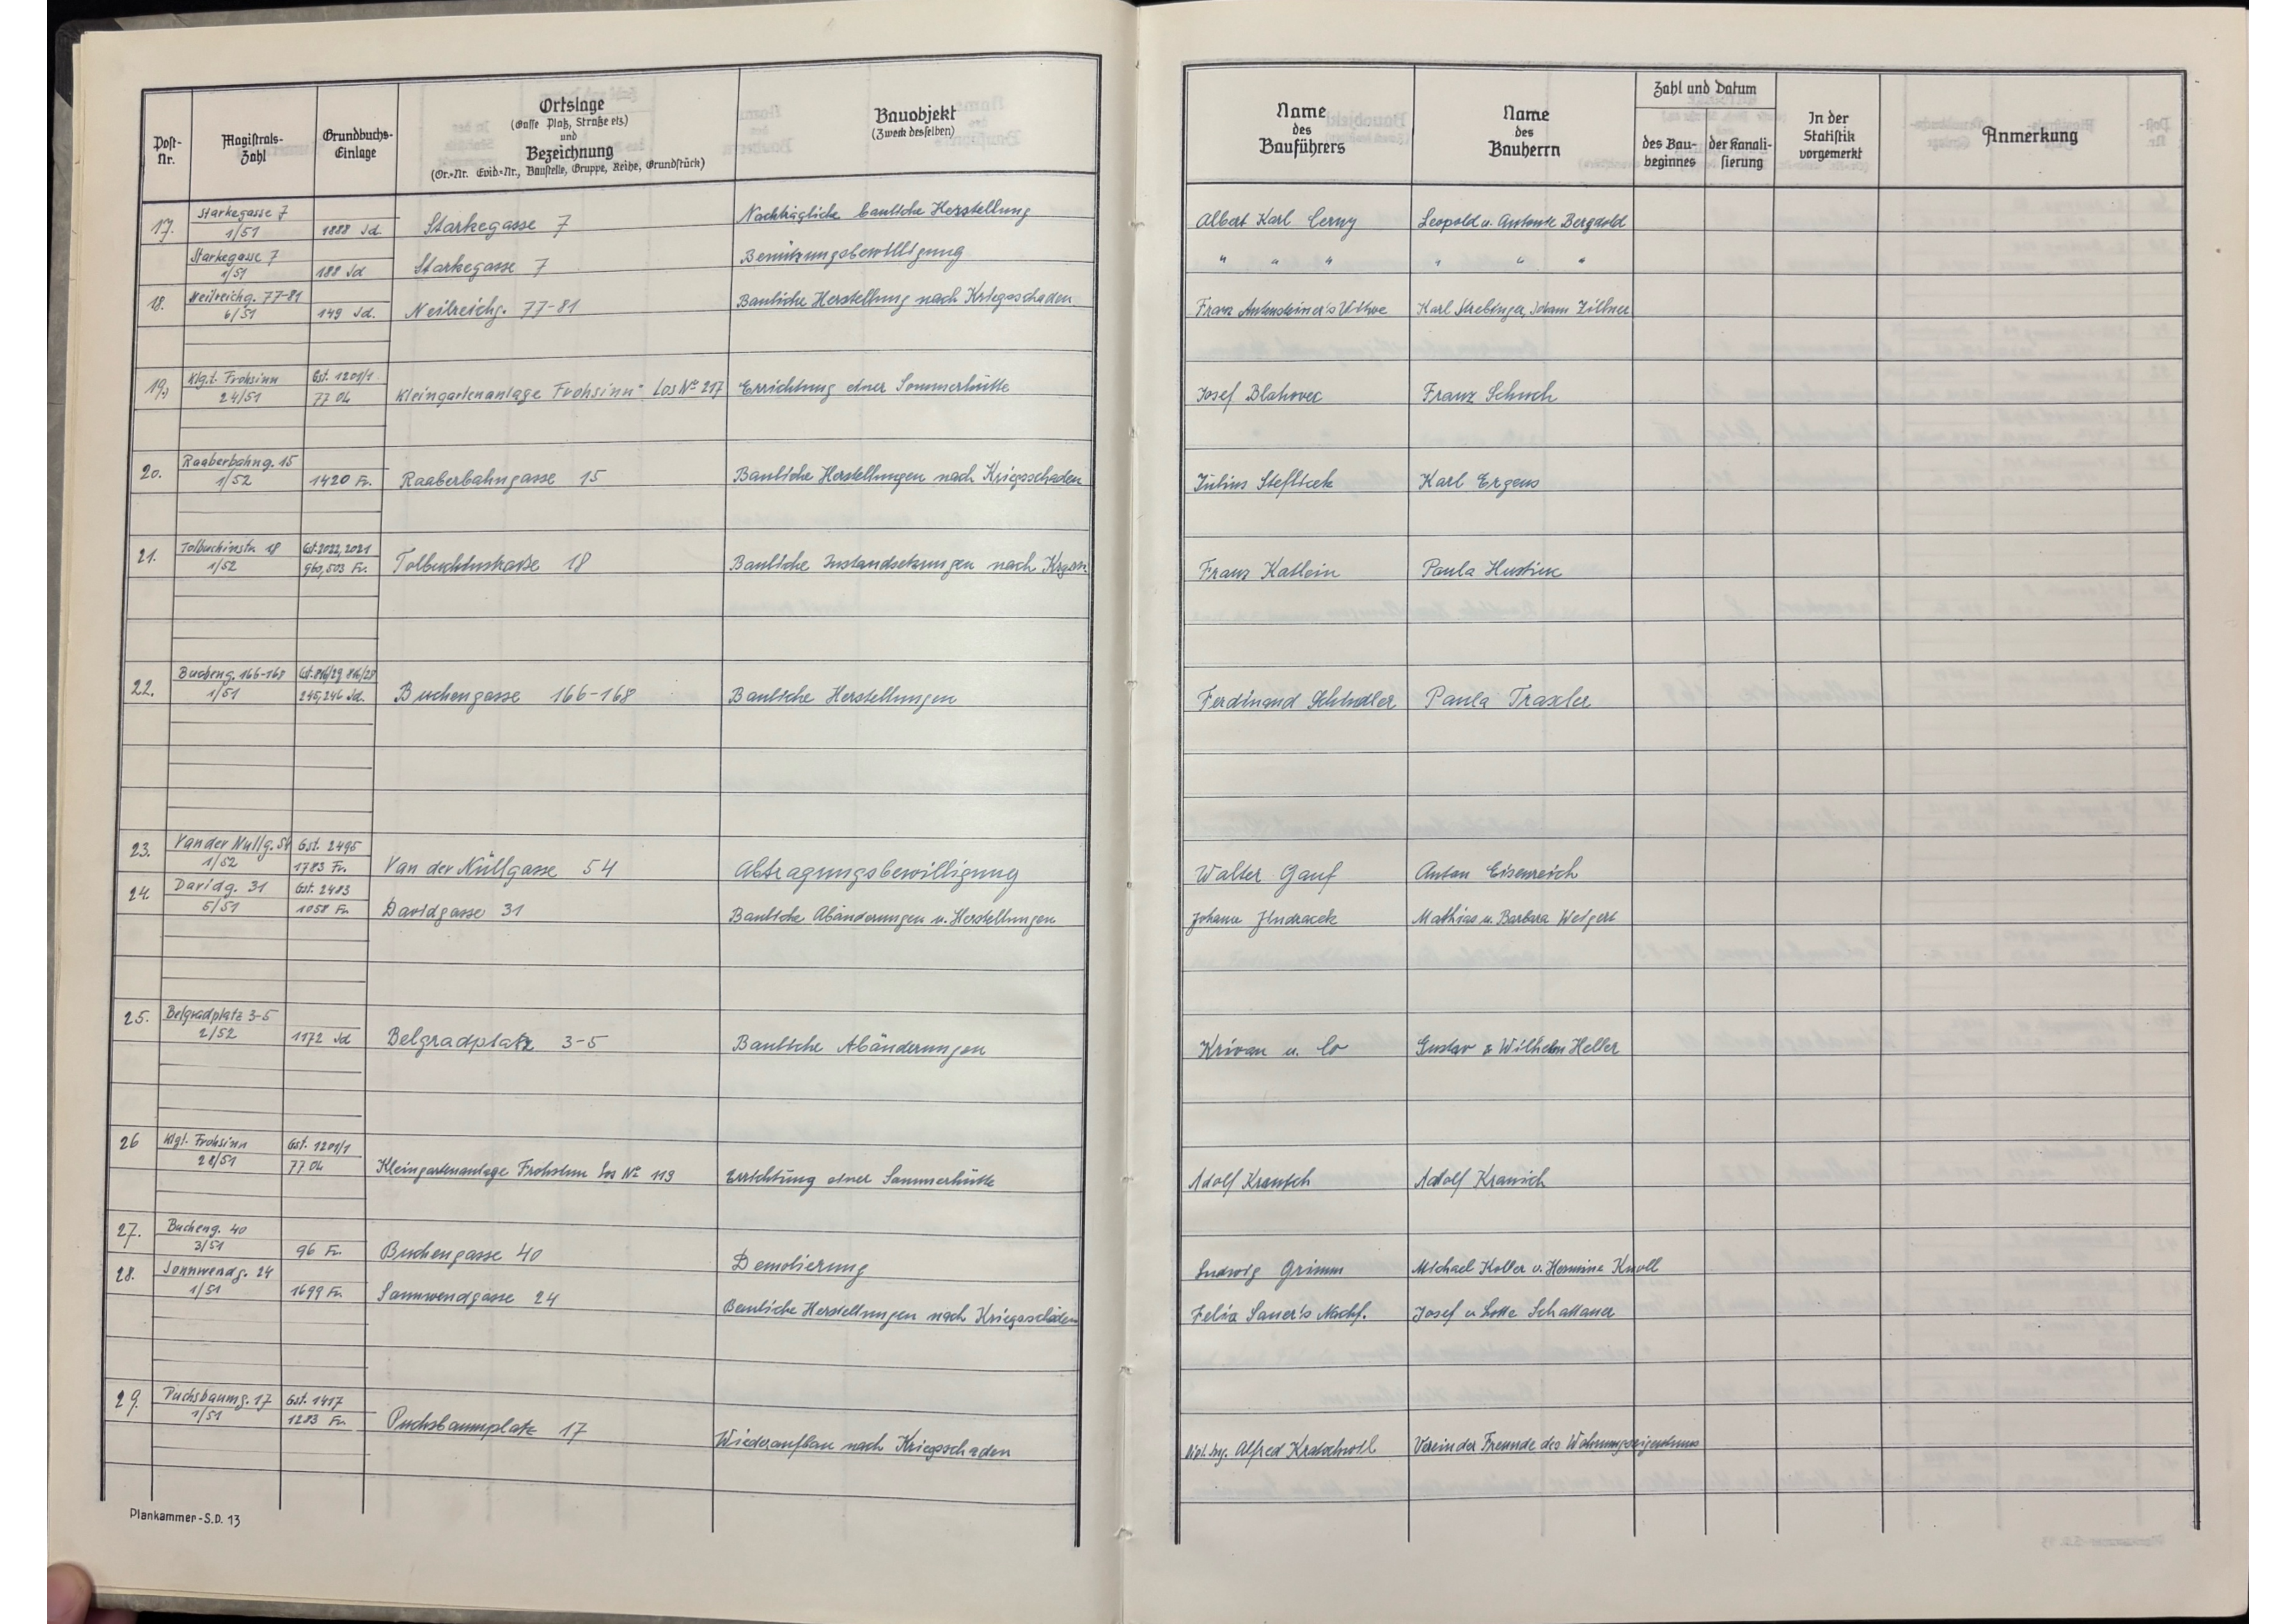 Post-Nr.
Magistrats-Zahl
Grundbuchs-Einlage
Ortslage
(Gasse Platz, Straße etz.)
und
Bezeichnung
(Or.-Nr. Evid.-Nr., Baustelle, Gruppe, Reihe, Grundstück)
Bauobjekt
(Zweck desselben)
Name
des
Bauführers
Name
des
Bauherrn
Zahl und Datum
des Bau-beginnes
der Kanali-sierung
In der
Statistik
vorgemerkt
Anmerkung
17. Starkegasse 7
1/51 1888 Jd. Starkegasse 7 Nachträgliche bauliche Herstellung Albert Karl Cerny Leopold u. Antonie Bergdold
Starkegasse 7
1/51 188 Jd Starkegasse 7 Benützungsbewilligung " " " " " "
18. Neilreichg. 77-81
6/51 149 Jd. Neilreichg. 77-81 Bauliche Herstellung nach Kriegsschaden Franz Karl Johann Zillner
19. Klg.t. Frohsinn Gst. 1201/1
24/51 77 OL Kleingartenanlage Frohsinn Los Nº 217 Errichtung einer Sommerhütte Josef Blahovec Franz Schuch
20. Raaberbahng. 15
1/52 1420 Fr. Raaberbahngasse 15 Bauliche Herstellungen nach Kriegsschaden Julius Steflicek Karl Ergens
21. Tolbuchinstr. 18 Gst. 2022, 2021
1/52 960, 503 Fr. Tolbuchinstraße 18 Bauliche Instandsetzungen nach Franz Katlein Paula
22. Bucheng. 166-168
1/51 245, 246 Jd. Buchengasse 166-168 Bauliche Herstellungen Ferdinand Schindler Paula Traxler
23. Van der Nullg. 54 Gst. 2495
1/52 1783 Fr. Van der Nüllgasse 54 Abtragungsbewilligung Walter Gauf Anton Eisenreich
24. Davidg. 31 Gst. 2483
5/51 1058 Fr. Davidgasse 31 Bauliche Abänderungen u. Herstellungen Johann Jindracek Mathias u. Barbara Weigert
25. Belgradplatz 3-5
2/52 1172 Jd Belgradplatz 3-5 Bauliche Abänderungen Krivan u. Co Gustav & Wilhelm Heller
26 Klgt. Frohsinn Gst. 1201/1
28/51 77 OL Kleingartenanlage Frohsinn Los Nº 113 Errichtung einer Sommerhütte Adolf Adolf
27. Bucheng. 40
3/51 96 Fr. Buchengasse 40 Demolierung Ludwig Grimm Michael Koller u. Hermine Knoll
28. Sonnwendg. 24
1/51 1699 Fr. Sonnwendgasse 24 Bauliche Herstellungen nach Kriegsschäden Felix Sauer's Nachf. Josef u Lotte Schattauer
29. Puchsbaumg. 17 Gst. 1417
1/51 1283 Fr. Puchsbaumplatz 17 Wiederaufbau nach Kriegsschaden Dipl. Ing. Alfred Kratochwill Verein der Freunde des Wohnungseigentums
Plankammer-S.D. 13